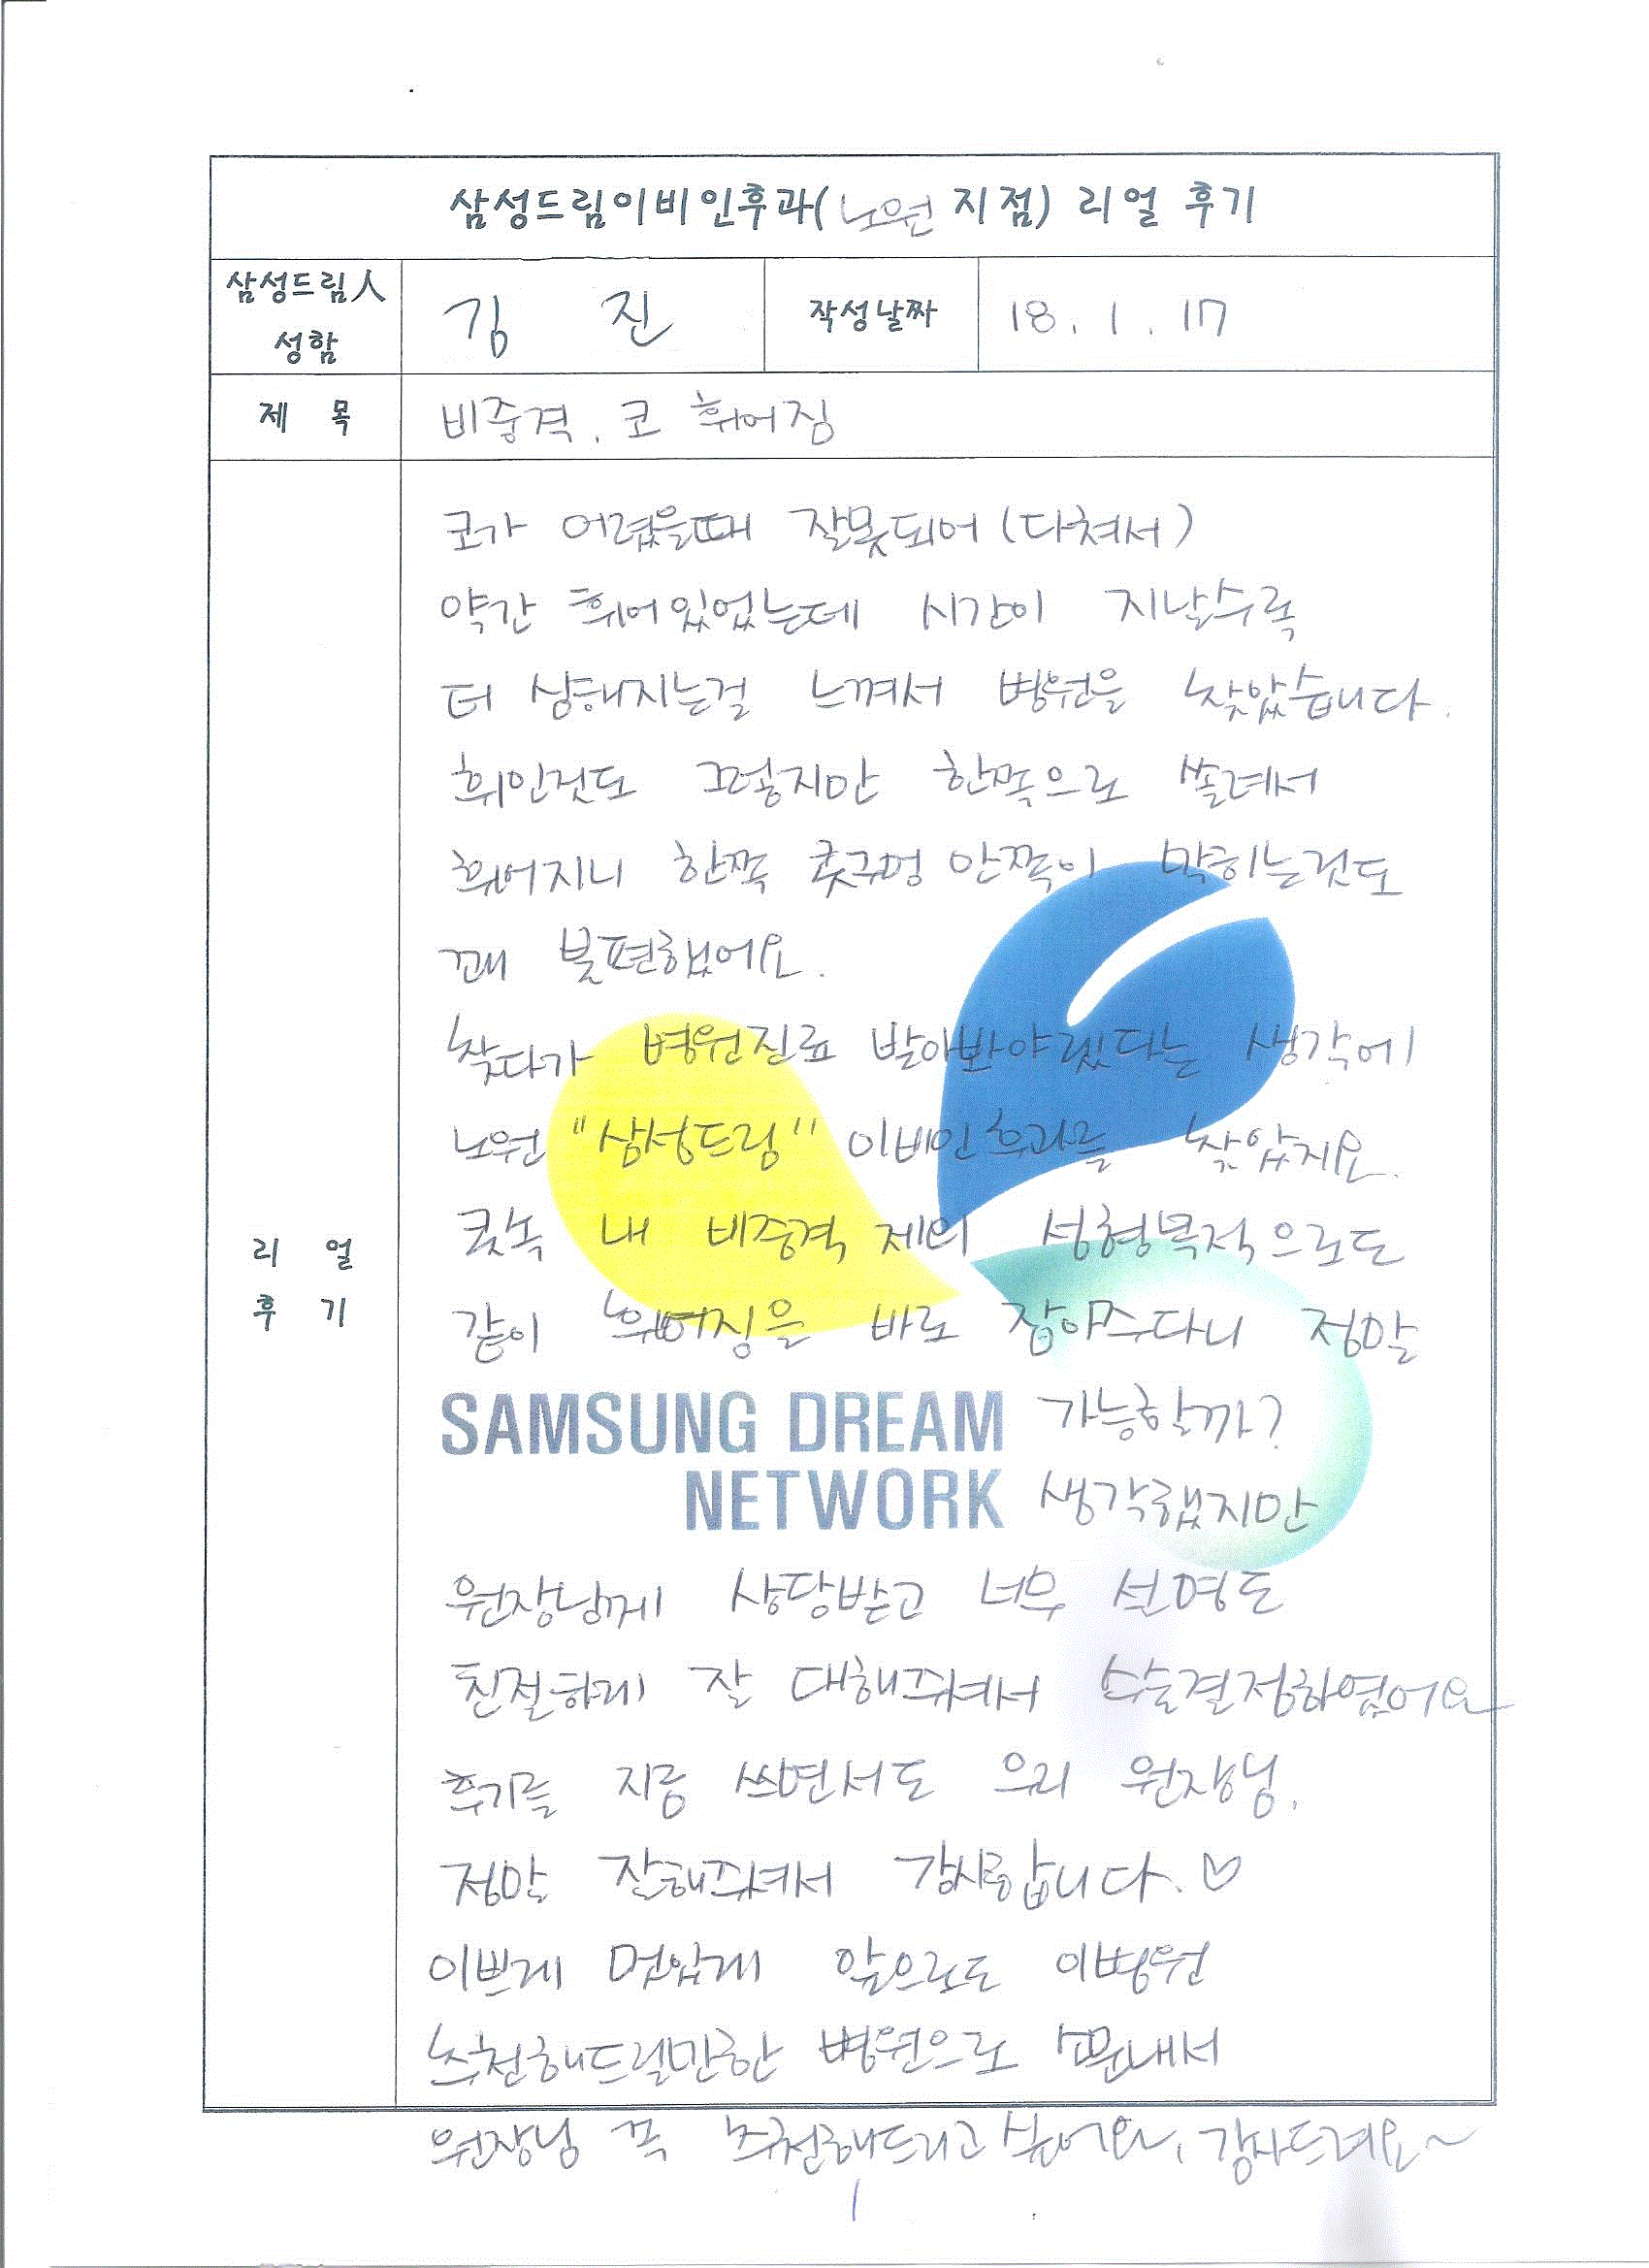 삼성드림이비인후과(노원 지점) 리얼 후기
삼성드림人 성함
김 진
작성날짜
18. 1. 17
제 목
비중격, 코 휘어짐
리 얼 후 기
코가 어렸을때 잘못되어 (다쳐서)
약간 휘어있었는데 시간이 지날수록
더 심해지는걸 느껴서 병원을 찾았습니다.
휘인것도 그렇지만 한쪽으로 쏠려서
휘어지니 한쪽 콧구멍 안쪽이 막히는것도
꽤 불편했어요.
찾다가 병원진료 받아봐야겠다는 생각에
노원 "삼성드림" 이비인후과를 찾았지요.
콧속 내 비중격 제외 성형목적으로도
같이 휘어짐을 바로 잡아주다니 정말
SAMSUNG DREAM 가능할까?
NETWORK 생각했지만
원장님께 상담받고 너무 선영도
친절하게 잘 대해주셔서 수술결정하였어요
후기를 지금 쓰면서도 우리 원장님.
정말 잘해주셔서 감사합니다. ♡
이쁘게 멋있게 앞으로도 이병원
추천해드릴만한 병원으로 소문내서
원장님 꼭 추천해드리고 싶어요, 감사드려요~